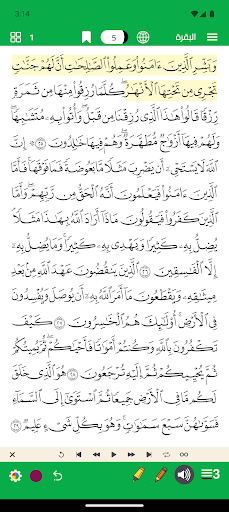 3:14
1
5
البقرة
وَبَشِّرِ ٱلَّذِينَ ءَامَنُوا۟ وَعَمِلُوا۟ ٱلصَّٰلِحَٰتِ أَنَّ لَهُمْ جَنَّٰتٍ
تَجْرِى مِن تَحْتِهَا ٱلْأَنْهَٰرُ ۖ كُلَّمَا رُزِقُوا۟ مِنْهَا مِن ثَمَرَةٍ
رِّزْقًا ۙ قَالُوا۟ هَٰذَا ٱلَّذِى رُزِقْنَا مِن قَبْلُ ۖ وَأُتُوا۟ بِهِۦ مُتَشَٰبِهًا ۖ
وَلَهُمْ فِيهَآ أَزْوَٰجٌ مُّطَهَّرَةٌ ۖ وَهُمْ فِيهَا خَٰلِدُونَ ٢٥ ۞ إِنَّ
ٱللَّهَ لَا يَسْتَحْىِۦٓ أَن يَضْرِبَ مَثَلًا مَّا بَعُوضَةً فَمَا فَوْقَهَا ۚ فَأَمَّا
ٱلَّذِينَ ءَامَنُوا۟ فَيَعْلَمُونَ أَنَّهُ ٱلْحَقُّ مِن رَّبِّهِمْ ۖ وَأَمَّا
ٱلَّذِينَ كَفَرُوا۟ فَيَقُولُونَ مَاذَآ أَرَادَ ٱللَّهُ بِهَٰذَا مَثَلًا ۘ
يُضِلُّ بِهِۦ كَثِيرًا وَيَهْدِى بِهِۦ كَثِيرًا ۚ وَمَا يُضِلُّ بِهِۦٓ
إِلَّا ٱلْفَٰسِقِينَ ٢٦ ٱلَّذِينَ يَنقُضُونَ عَهْدَ ٱللَّهِ مِنۢ بَعْدِ
مِيثَٰقِهِۦ وَيَقْطَعُونَ مَآ أَمَرَ ٱللَّهُ بِهِۦٓ أَن يُوصَلَ وَيُفْسِدُونَ
فِى ٱلْأَرْضِ ۚ أُو۟لَٰٓئِكَ هُمُ ٱلْخَٰسِرُونَ ٢٧ كَيْفَ
تَكْفُرُونَ بِٱللَّهِ وَكُنتُمْ أَمْوَٰتًا فَأَحْيَٰكُمْ ۖ ثُمَّ يُمِيتُكُمْ
ثُمَّ يُحْيِيكُمْ ثُمَّ إِلَيْهِ تُرْجَعُونَ ٢٨ هُوَ ٱلَّذِى خَلَقَ
لَكُم مَّا فِى ٱلْأَرْضِ جَمِيعًا ثُمَّ ٱسْتَوَىٰٓ إِلَى ٱلسَّمَآءِ
فَسَوَّىٰهُنَّ سَبْعَ سَمَٰوَٰتٍ ۚ وَهُوَ بِكُلِّ شَىْءٍ عَلِيمٌ ٢٩
3